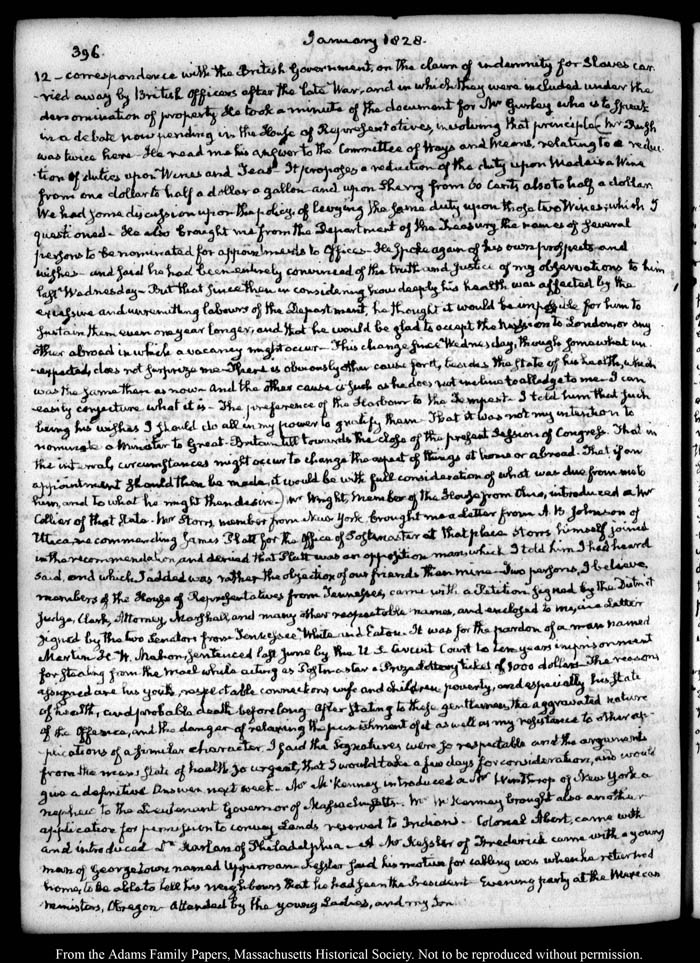 396.
January 1828.
12 – correspondence with the British Government, on the claim of indemnity for Slaves car-
-ried away by British Officers after the late War, and in which they were included under the
denomination of property. He took a minute of the document for Mr Gurley who is to speak
in a debate now pending in the House of Representatives, involving that principle. Mr Rush
was twice here – He read me his answer to the Committee of Ways and Means, relating to a reduc-
tion of duties upon Wines and Teas – It proposes a reduction of the duty upon Madeira Wine
from one dollar to half a dollar a gallon and upon Sherry from 60 Cents also to half a dollar.
We had some discussion upon the policy of levying the same duty upon those two Wines; which I
questioned – He also brought me from the Department of the Treasury the names of several
persons to be nominated for appointments to Offices – He spoke again of his own prospects and
wishes – and said he had been entirely convinced of the truth and justice of my observations to him
last Wednesday – But that since then in considering how deeply his health was affected by the
excessive and unremitting labours of the Department, he thought it would be impossible for him to
sustain them even one year longer, and that he would be glad to accept the mission to London, or any
other abroad in which a vacancy might occur – This change since Wednesday, though somewhat un-
-expected, does not surprize me – There is obviously other cause for it, besides the state of his health, which
was the same then as now – And the other cause is such as he does not incline to alledge to me – I can
easily conjecture what it is – The preference of the Harbour to the Tempest – I told him that such
being his wishes I should do all in my power to gratify them – That it was not my intention to
nominate a Minister to Great-Britain till towards the close of the present Session of Congress. That in
the interval, circumstances might occur to change the aspect of things at home or abroad. That if an
appointment should then be made, it would be with full consideration of what was due from me to
him, and to what he might then desire – Mr Wright, member of the House from Ohio, introduced a Mr
Collier of that State – Mr Storrs, member from New York brought me a Letter from A. B. Johnson of
Utica, recommending James Platt for the Office of Postmaster at that place. Storrs himself joined
in the recommendation, and denied that Platt was an opposition man, which I told him I had heard
said, and which I added was rather the objection of our friends than mine – Two persons, I believe,
members of the House of Representatives from Tennessee, came with a Petition signed by the District
Judge, Clerk, Attorney, Marshal, and many other respectable names, and enclosed to me, in a Letter
signed by the two Senators from Tennessee White and Eaton. It was for the pardon of a man named
Martin H. W. Mahon, sentenced last June by the U. S. Circuit Court to ten years imprisonment
for stealing from the mail while acting as Postmaster a Prize Lottery ticket of 1000 dollars – The reasons
assigned are his youth, respectable connections, wife and children, poverty, and especially his state
of health, and probable death before long – After stating to these gentlemen, the aggravated nature
of the Offence, and the danger of relaxing the punishment of it as well as my resistance to other ap-
-plications of a similar character, I said the signatures were so respectable and the arguments
from the man's state of health so urgent, that I would take a few days for consideration, and would
give a definitive answer next week. Mr McKenney introduced a Mr Winthrop of New York a
nephew to the Lieutenant Governor of Massachusetts. Mr McKenney brought also another
application for permission to convey Lands reserved to Indians – Colonel Abert, came with
and introduced Dr Harlan of Philadelphia – A Mr Kessler of Frederick came with a young
man of Georgetown named Upperman – Kessler said his motive for calling was when he returned
home, to be able to tell his neighbours that he had seen the President – Evening party at the Mexican
ministers, Obregon – Attended by the young Ladies, and my Son
From the Adams Family Papers, Massachusetts Historical Society. Not to be reproduced without permission.